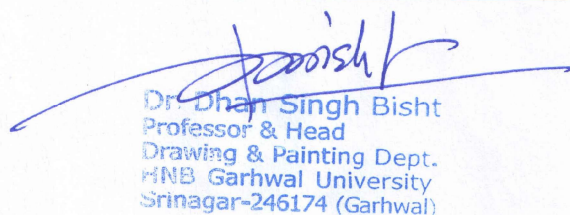 Dr. Dhan Singh Bisht
Professor & Head
Drawing & Painting Dept.
HNB Garhwal University
Srinagar-246174 (Garhwal)